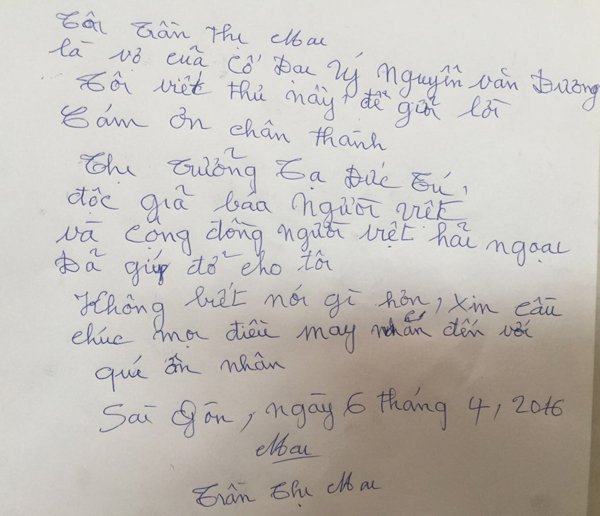 Tôi Trần Thị Mai
là vợ của Cố Đai Uý Nguyễn văn Dương
Tôi viết thủ này, để gửi lời
Cám ơn chân thành
Thị Trưởng Tạ Đức Trí,
độc giả báo Người việt
và Cộng đồng người việt hải ngoại
Đã giúp đở cho tôi
Không biết nói gì hơn, xin cầu
chúc mọi điều may mắn đến với
quí ân nhân
Sài Gòn, ngày 6 tháng 4, 2016
Mai
Trần Thị Mai